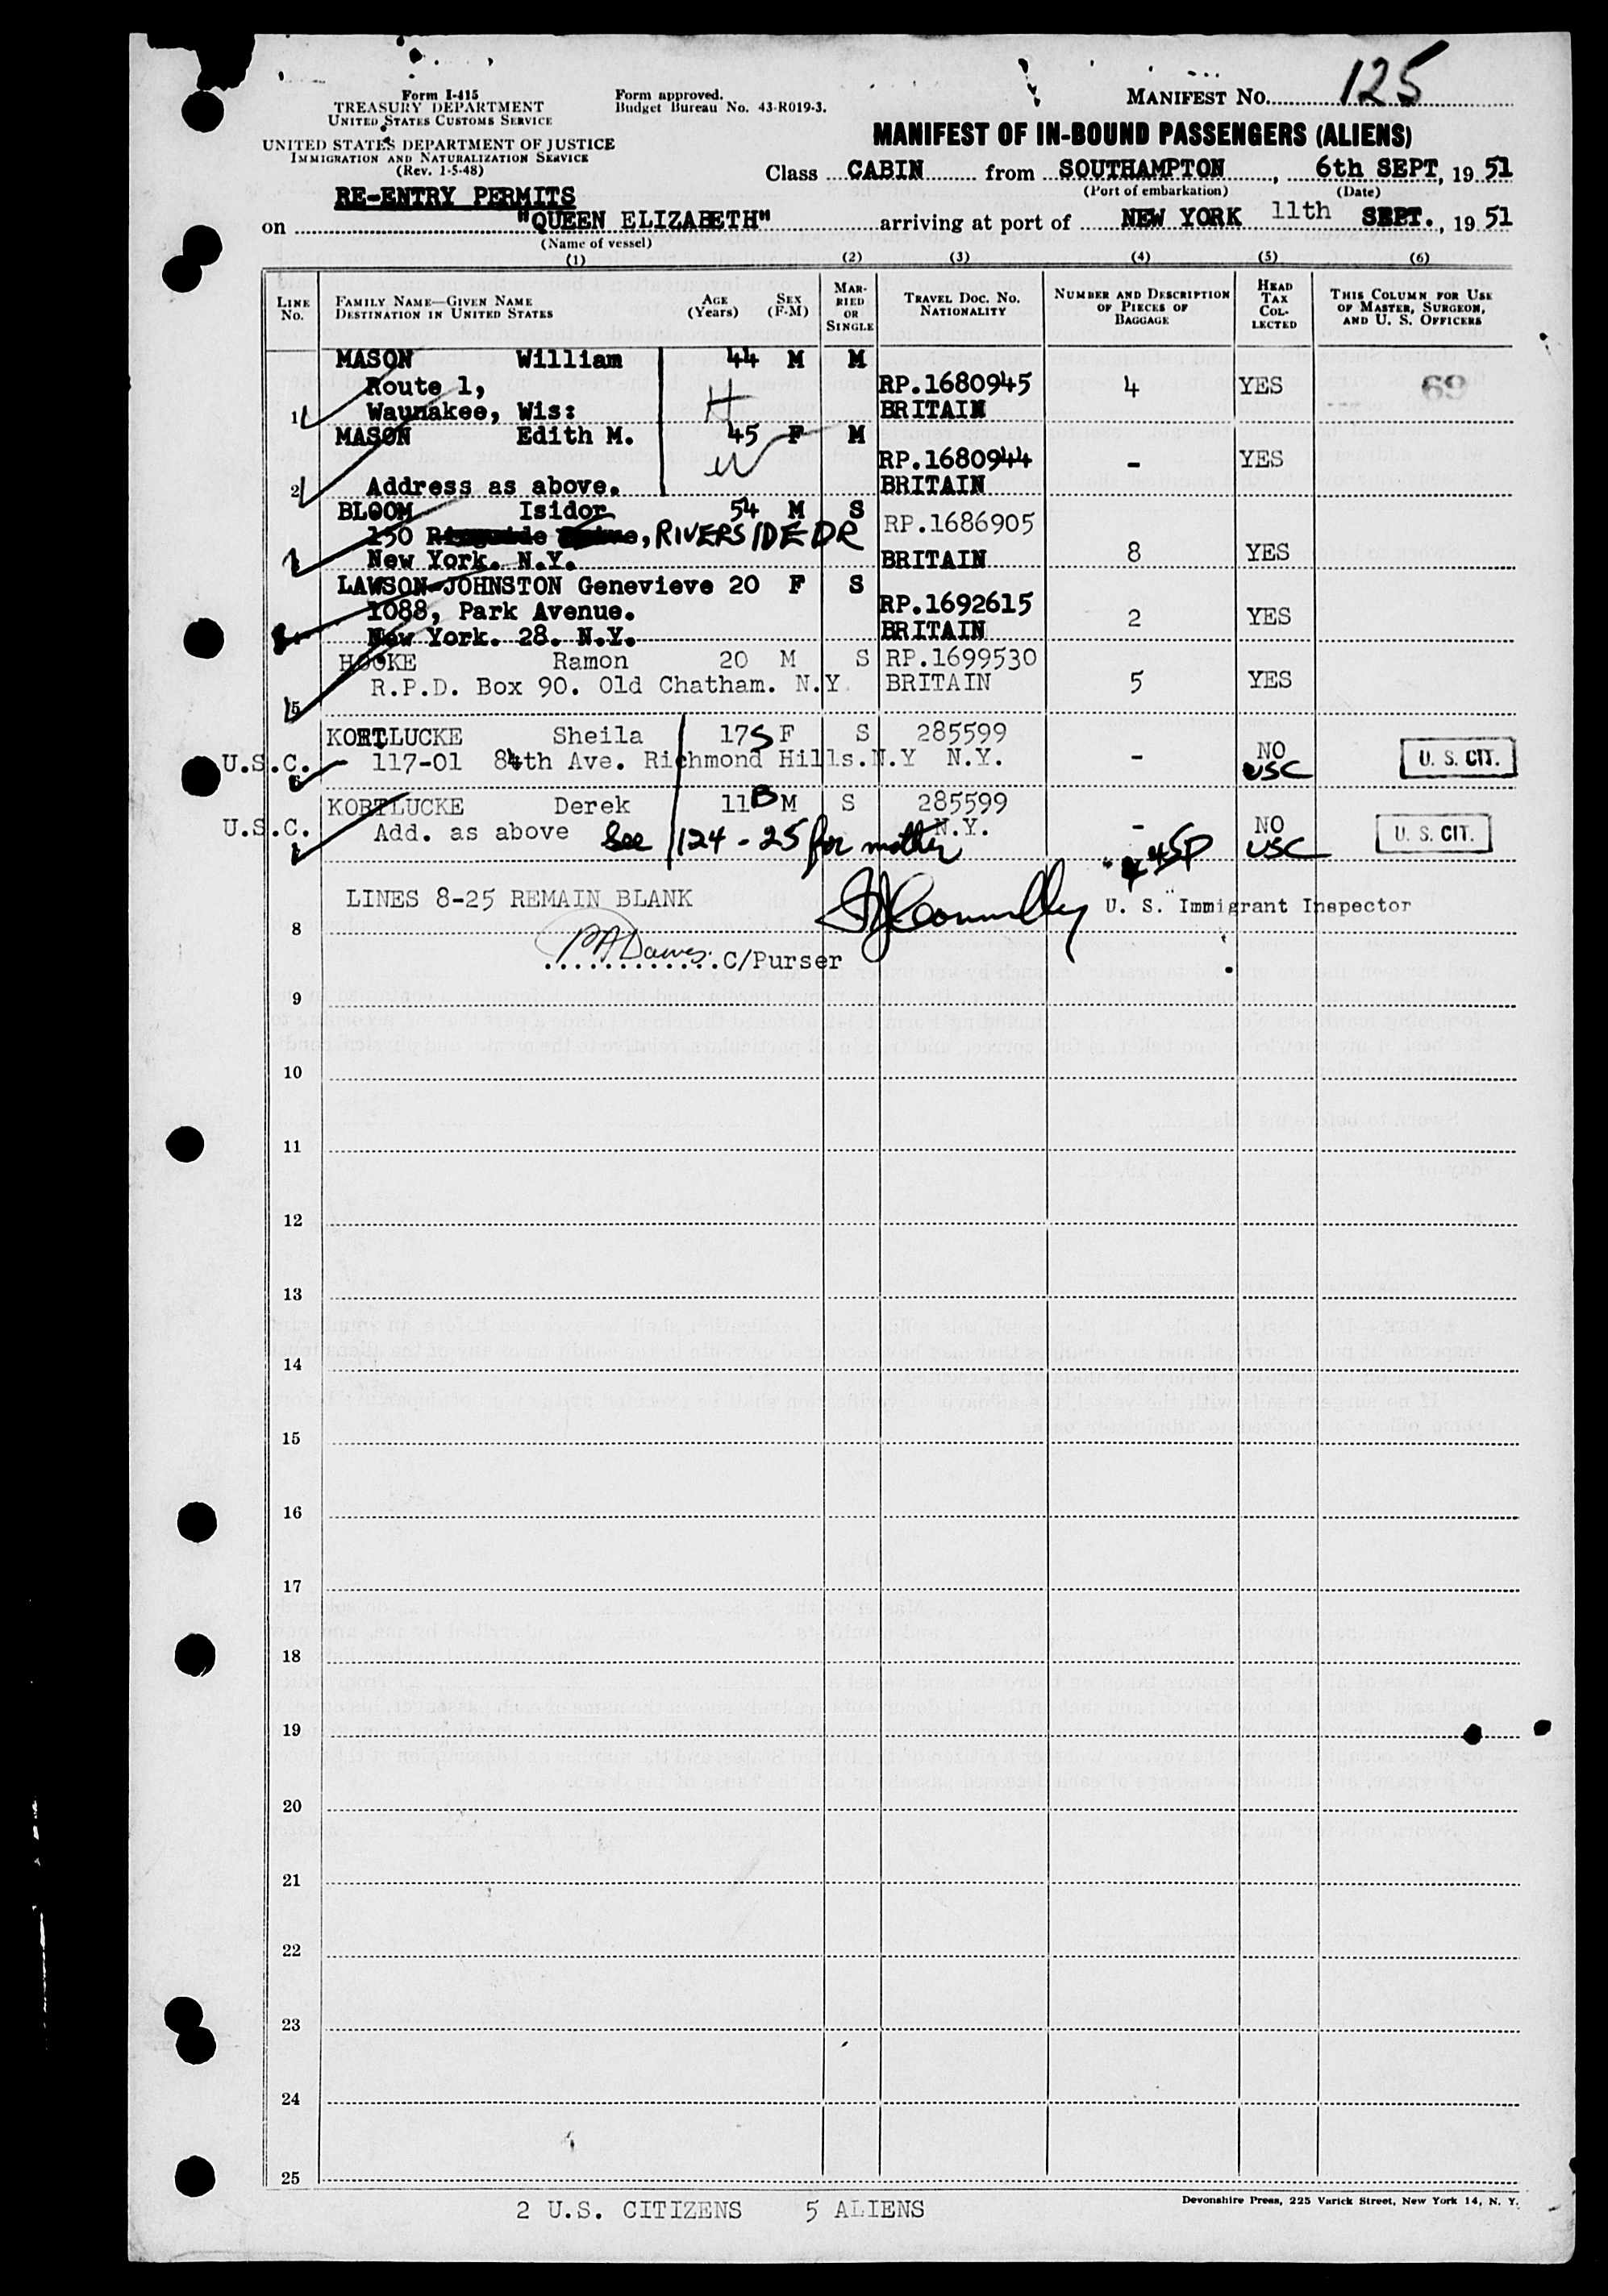 Form I-415
TREASURY DEPARTMENT
UNITED STATES CUSTOMS SERVICE
UNITED STATES DEPARTMENT OF JUSTICE
IMMIGRATION AND NATURALIZATION SERVICE
(Rev. 1-5-48)
Form approved.
Budget Bureau No. 43-R019-3.
MANIFEST NO. 125
MANIFEST OF IN-BOUND PASSENGERS (ALIENS)
Class CABIN from SOUTHAMPTON, 6th SEPT, 19 51
(Port of embarkation) (Date)
RE-ENTRY PERMITS
on "QUEEN ELIZABETH" arriving at port of NEW YORK 11th SEPT., 19 51
(Name of vessel)
(1) (2) (3) (4) (5) (6)
LINE No. FAMILY NAME—GIVEN NAME DESTINATION IN UNITED STATES AGE (Years) SEX (F-M) MARRIED OR SINGLE TRAVEL DOC. NO. NATIONALITY NUMBER AND DESCRIPTION OF PIECES OF BAGGAGE HEAD TAX COLLECTED THIS COLUMN FOR USE OF MASTER, SURGEON, AND U. S. OFFICERS
MASON William 44 M M
Route 1, H RP.1680945 4 YES 69
1 Waunakee, Wis: BRITAIN
MASON Edith M. 45 F M
W RP.1680944 - YES
2 Address as above. BRITAIN
BLOOM Isidor 54 M S RP.1686905
150 RIVERSIDE DR
New York. N.Y. BRITAIN 8 YES
LAWSON-JOHNSTON Genevieve 20 F S
1088, Park Avenue. RP.1692615 2 YES
New York. 28. N.Y. BRITAIN
HOOKE Ramon 20 M S RP.1699530
R.P.D. Box 90. Old Chatham. N.Y. BRITAIN 5 YES
5
KORTLUCKE Sheila 17 S F S 285599
U.S.C. 117-01 84th Ave. Richmond Hills.N.Y N.Y. - NO USC U. S. CIT.
KORTLUCKE Derek 11 B M S 285599
U.S.C. Add. as above N.Y. - NO USC U. S. CIT.
See 124-25 for mother
LINES 8-25 REMAIN BLANK
U. S. Immigrant Inspector
8
C/Purser
9
10
11
12
13
14
15
16
17
18
19
20
21
22
23
24
25
2 U.S. CITIZENS 5 ALIENS
Devonshire Press, 225 Varick Street, New York 14, N. Y.